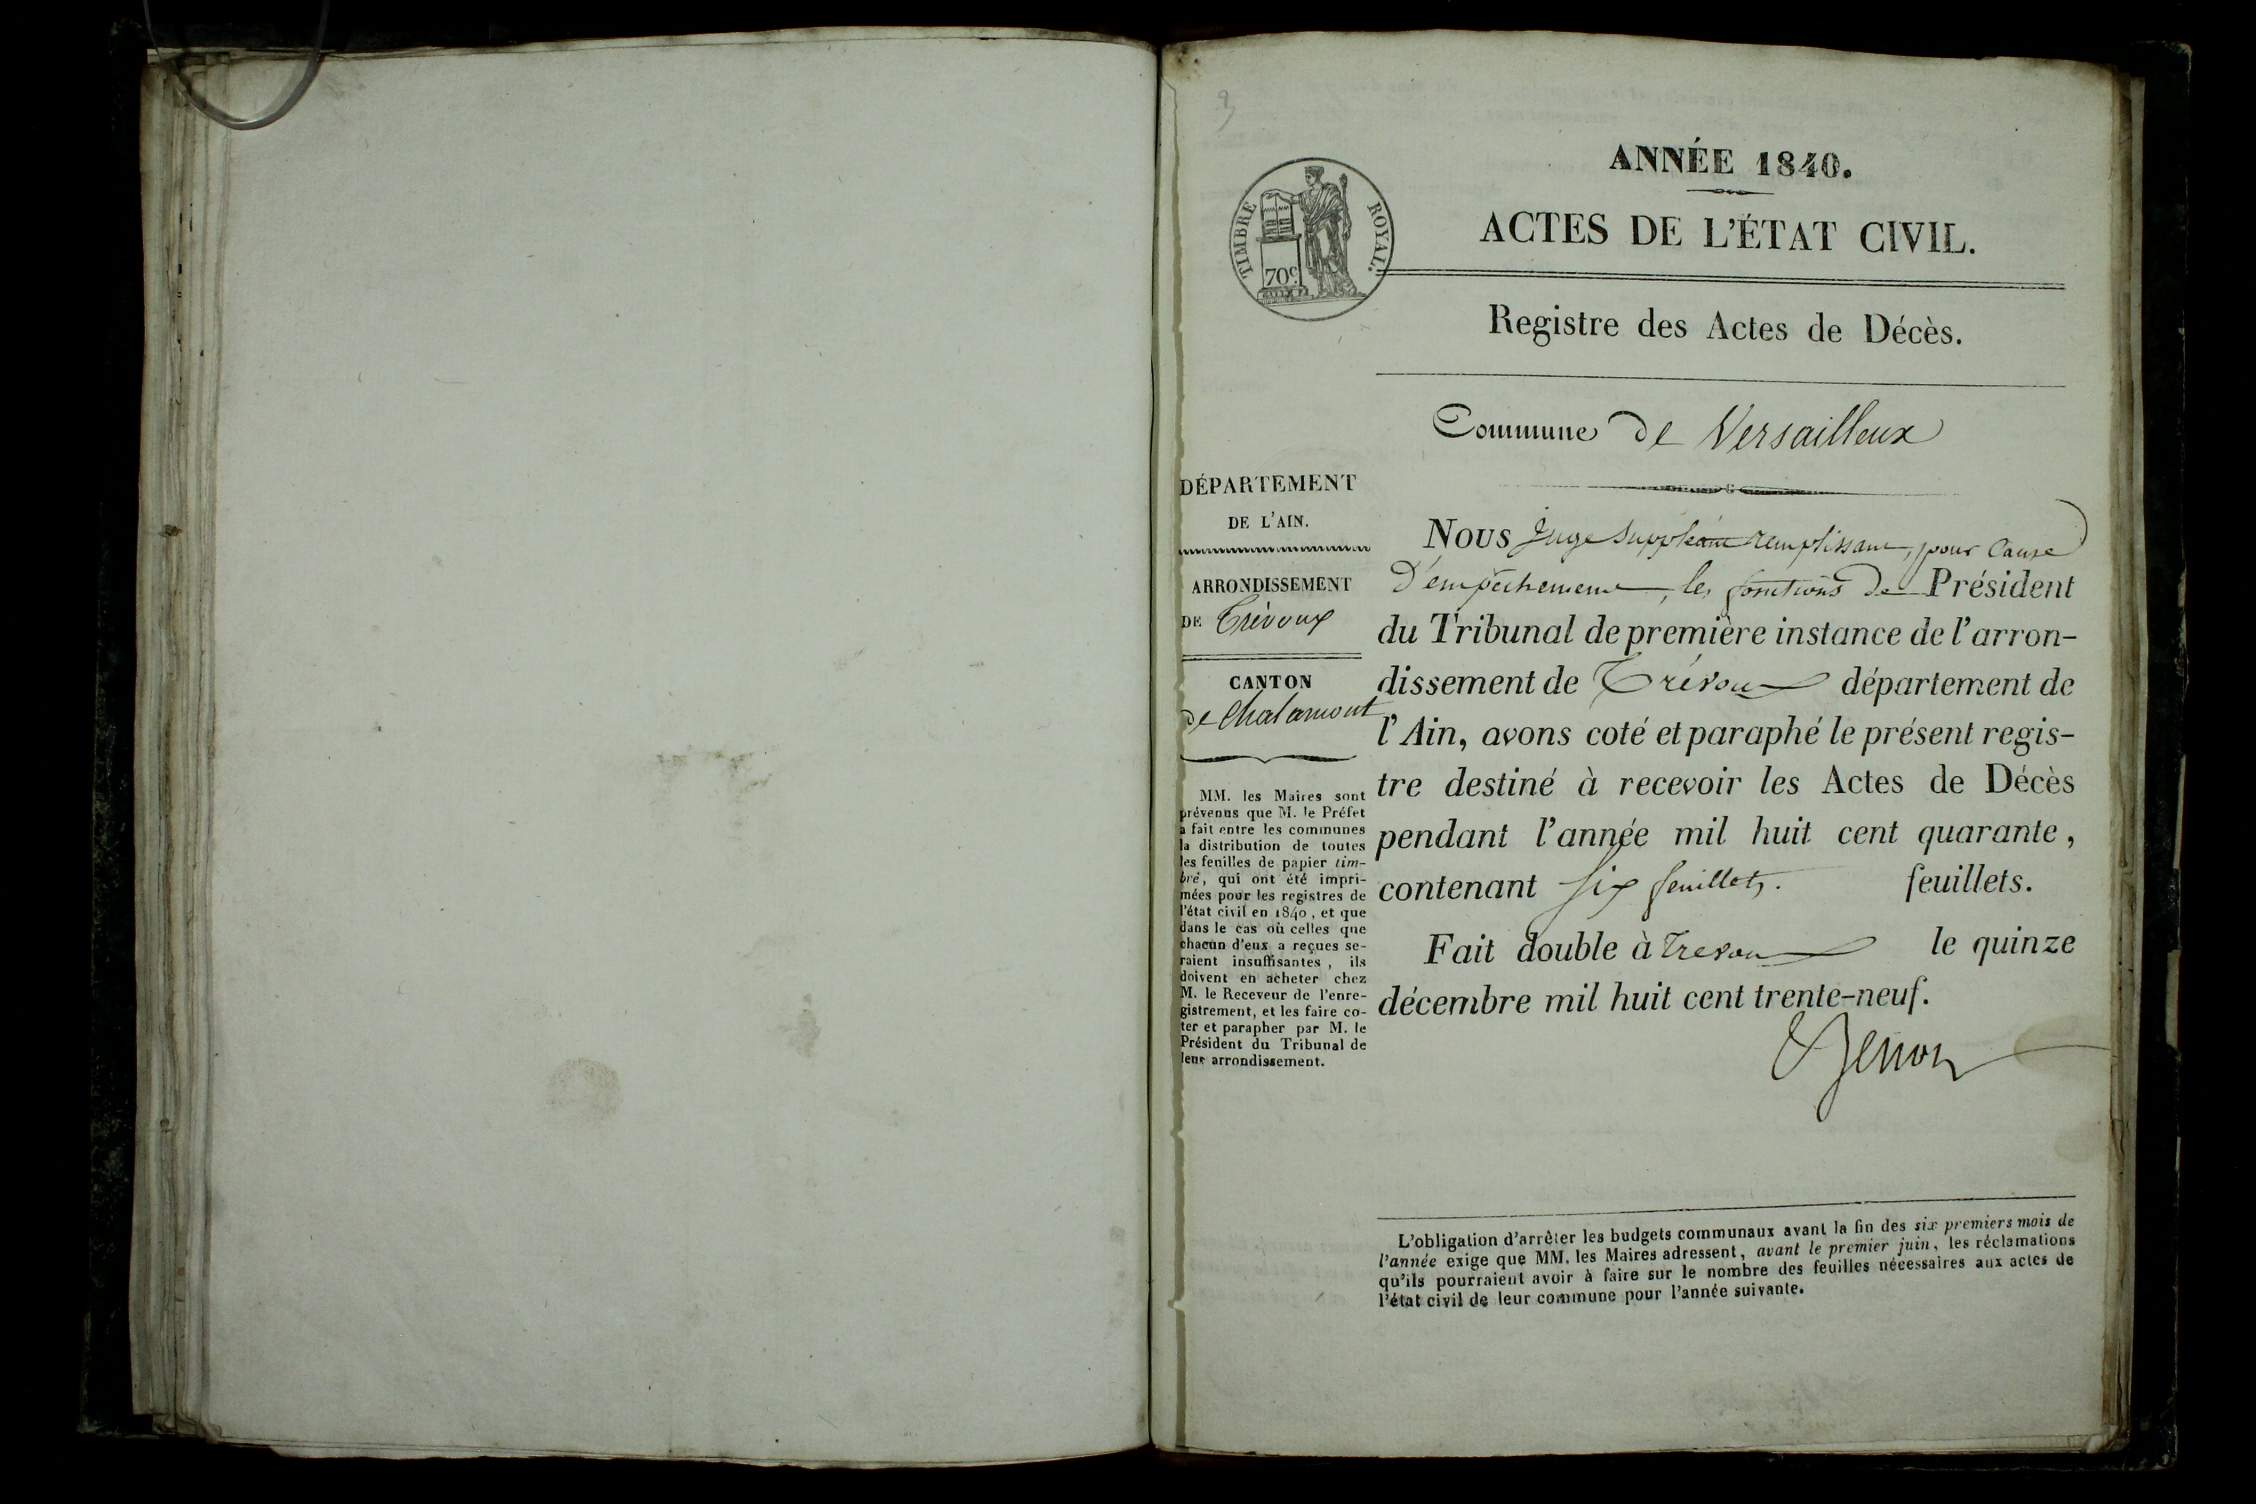 ANNÉE 1840.
TIMBRE ROYAL.
70c.
ACTES DE L'ÉTAT CIVIL.
Registre des Actes de Décès.
Commune de Versailleux
DÉPARTEMENT
DE L'AIN.
ARRONDISSEMENT
DE Trévoux
CANTON
de Chalamont
MM. les Maires sont
prévenus que M. le Préfet
a fait entre les communes
la distribution de toutes
les feuilles de papier tim-
bré, qui ont été impri-
mées pour les registres de
l'état civil en 1840, et que
dans le cas où celles que
chacun d'eux a reçues se-
raient insuffisantes, ils
doivent en acheter chez
M. le Receveur de l'enre-
gistrement, et les faire co-
ter et parapher par M. le
Président du Tribunal de
leur arrondissement.
Nous Juge suppléant remplissant, pour Cause
D'empêchement, les fonctions de Président
du Tribunal de première instance de l'arron-
dissement de Trévoux département de
l'Ain, avons coté et paraphé le présent regis-
tre destiné à recevoir les Actes de Décès
pendant l'année mil huit cent quarante,
contenant six feuillets. feuillets.
Fait double à Trevoux le quinze
décembre mil huit cent trente-neuf.
L'obligation d'arrêter les budgets communaux avant la fin des six premiers mois de
l'année exige que MM. les Maires adressent, avant le premier juin, les réclamations
qu'ils pourraient avoir à faire sur le nombre des feuilles nécessaires aux actes de
l'état civil de leur commune pour l'année suivante.